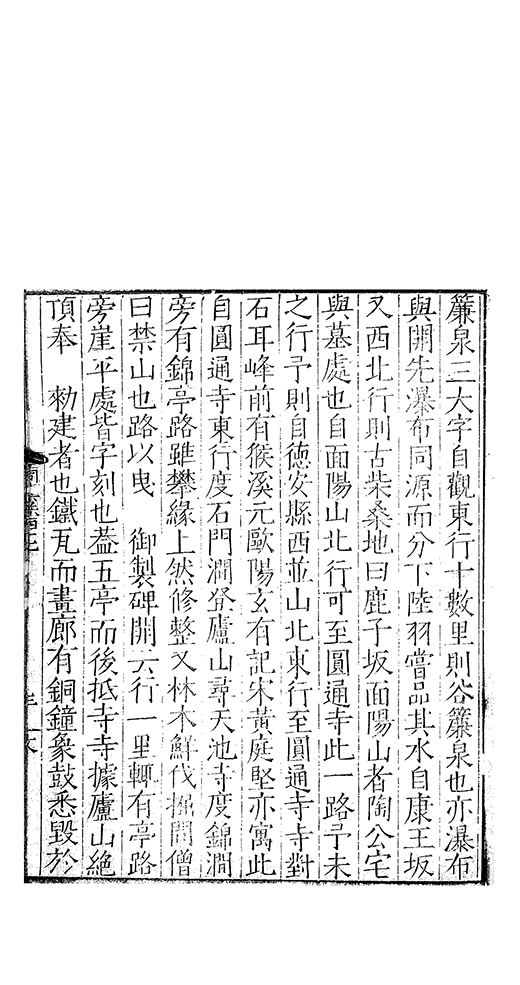 簾泉三大字自觀東行十數里則谷簾泉也亦瀑布
與開先瀑布同源而分下陸羽嘗品其水自康王坂
又西北行則古柴桑地曰鹿子坂面陽山者陶公宅
與墓處也自面陽山北行可至圓通寺此一路予未
之行予則自德安縣西並山北東行至圓通寺寺對
石耳峰前有侯溪元歐陽玄有記宋黃庭堅亦寓此
自圓通寺東行度石門澗登廬山尋天池寺度錦澗
旁有錦亭路雖攀緣上然修整又林木鮮伐 問僧
曰禁山也路以曳　御製碑開云行一里輒有亭路
旁崖平處皆字刻也葢五亭而後抵寺寺據廬山絶
頂奉　勑建者也鐵瓦而畫廊有銅鐘象鼓悉毀於